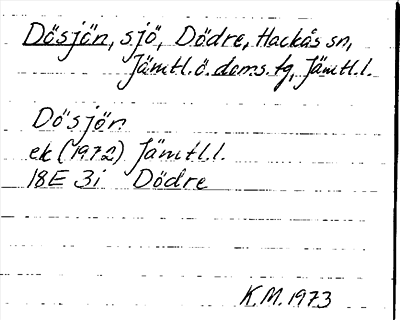 Dösjön, sjö, Dödre, Hackås sn,
Jämtl.ö. doms. tg, Jämtl.l.
Dösjön
ek (1972) Jämtl.l.
18E 3i Dödre
K.M. 1973